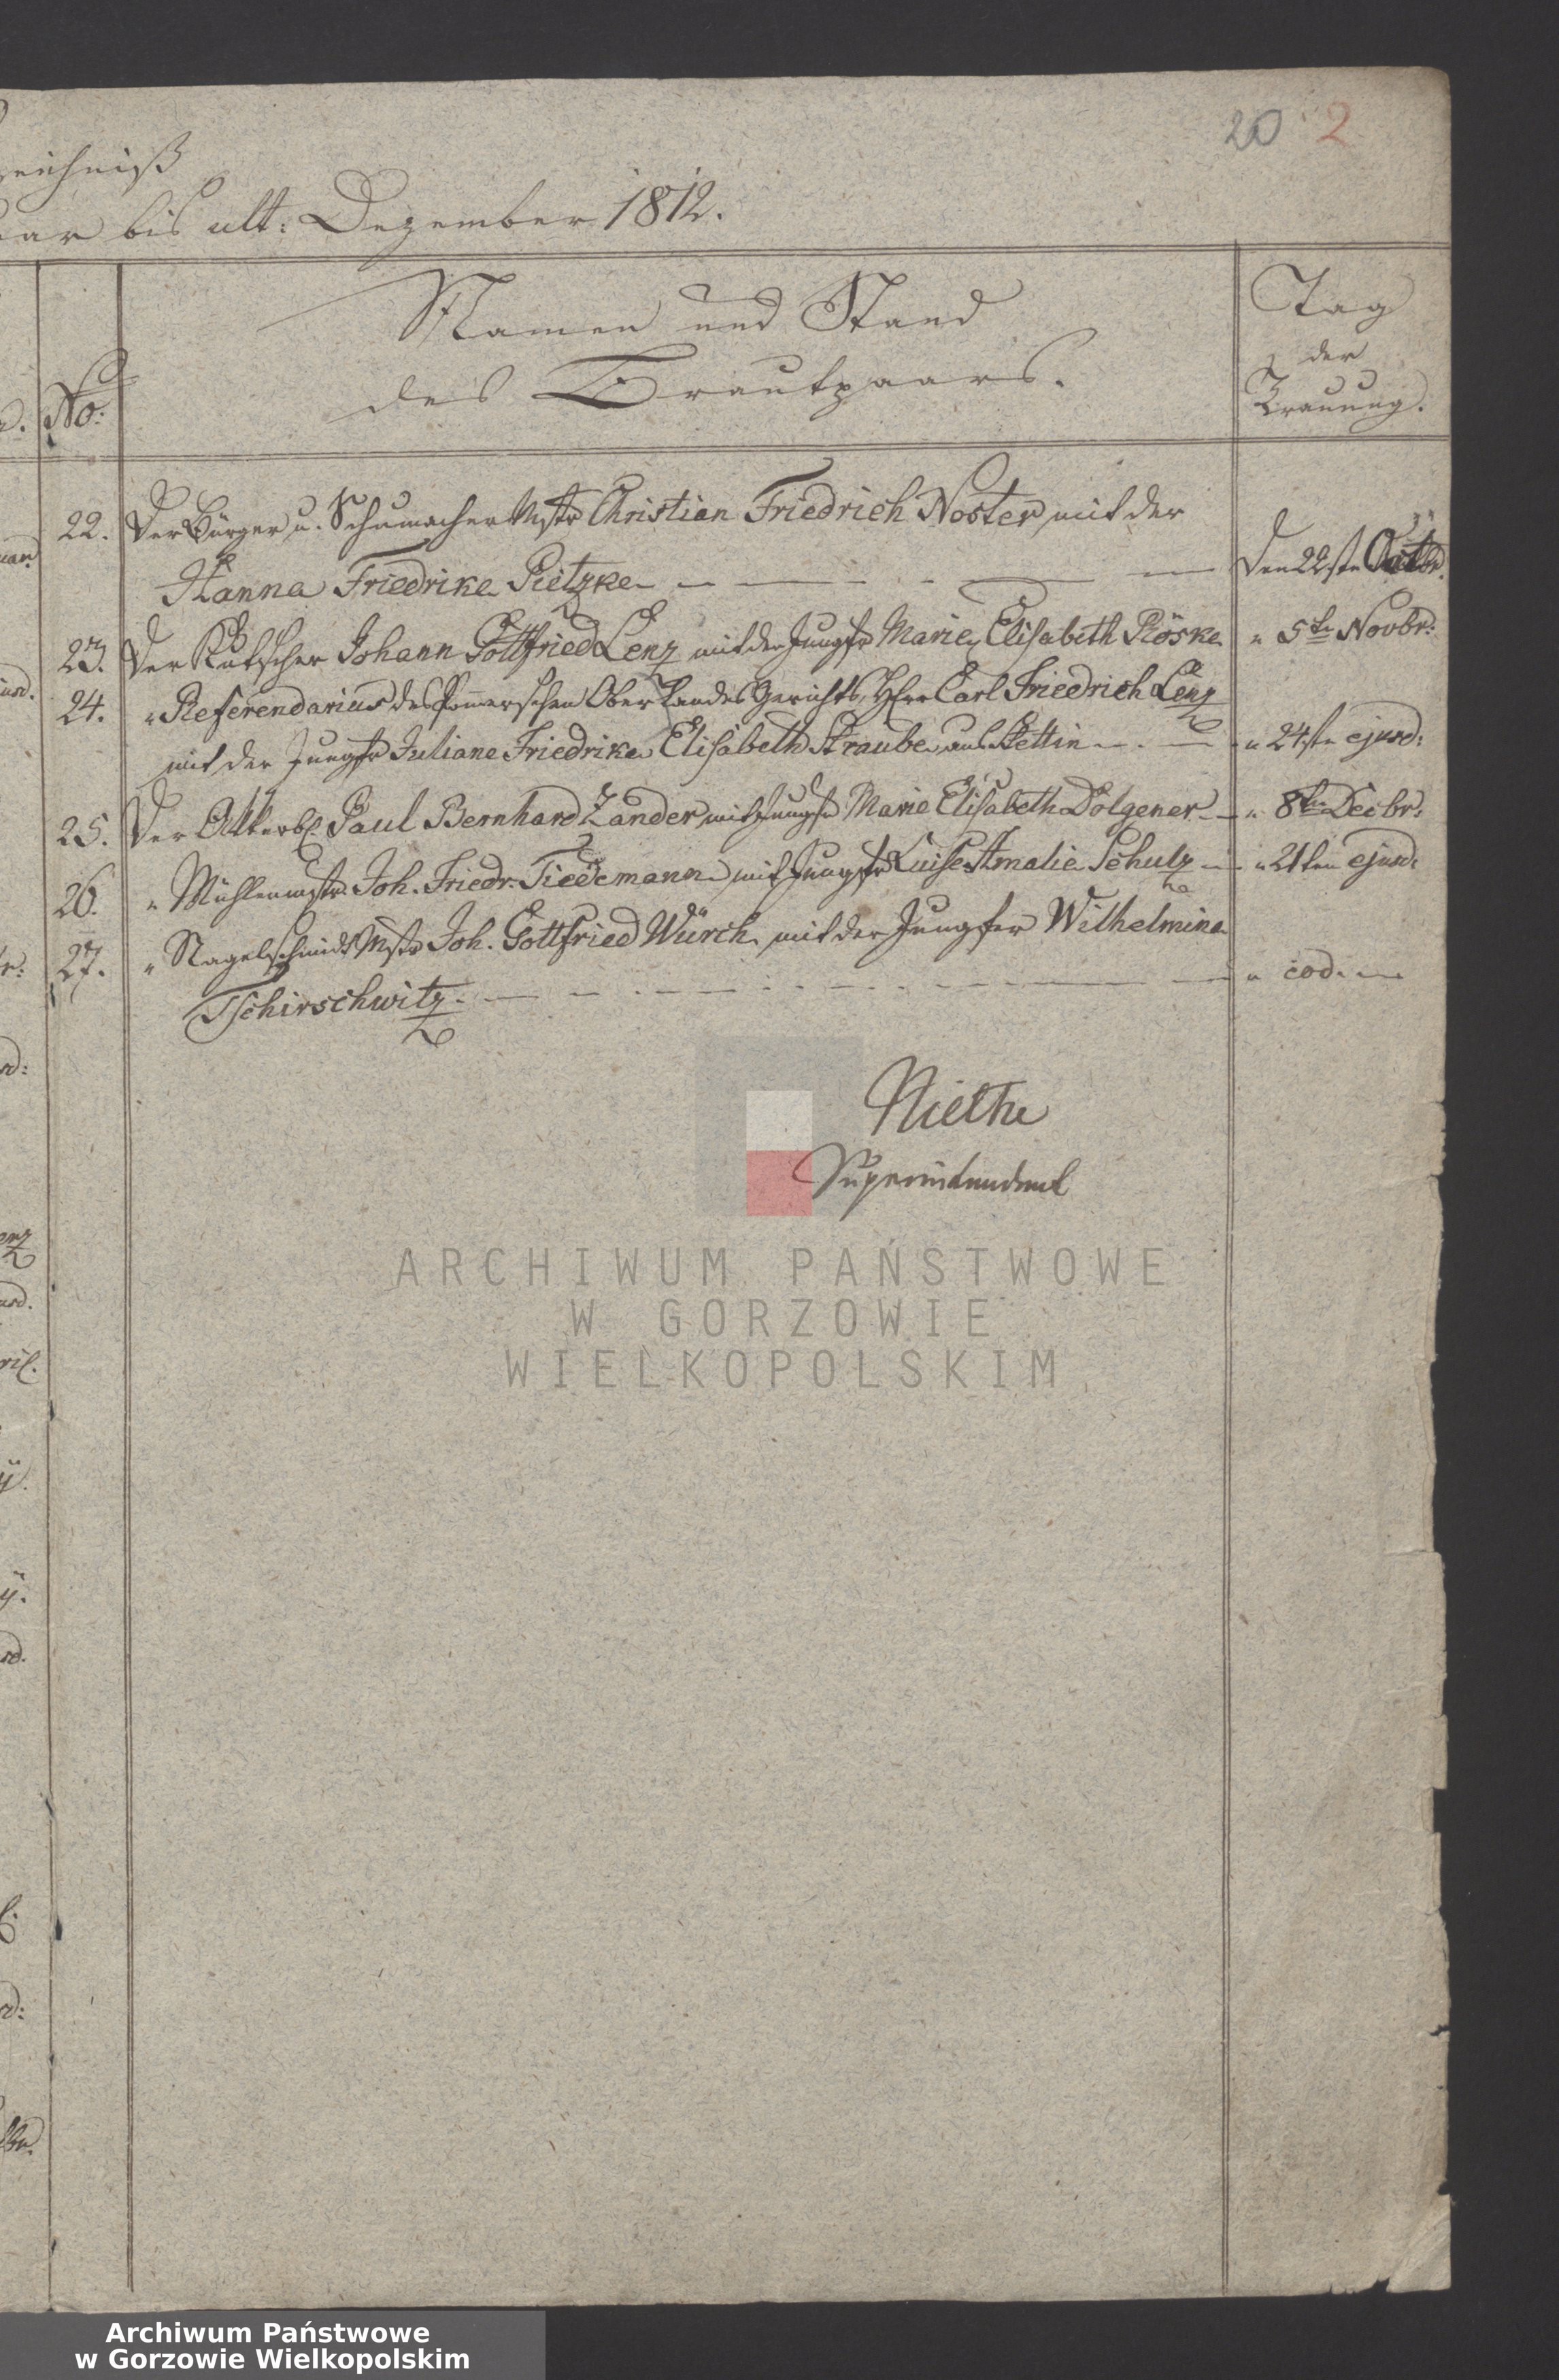 20 2
zeichniß
uar bis ult: Dezember 1812.
No:
Namen und Stand
des Brautpaars.
Tag
der
Trauung.
22. Der Bürger u. Schumacher Mstr Christian Friedrich Noster mit der
Hanna Friedrike Pietzke Den 22ste Octbr.
23. Der Kutscher Johann Gottfried Lenz mit der Jungfr Marie Elisabeth Röske " 5te Novbr:
24. " Referendarius des Pommerschen Ober Landes Gerichts, Herr Carl Friedrich Lenz
mit der Jungfr Juliane Friedrike Elisabeth Straube aus Stettin " 24ste ejusd:
25. Der Paul Bernhard Zander mit Jungfr Marie Elisabeth Dolgener " 8te Decbr:
26. " Mühlenmstr. Joh. Friedr. Tiedemann mit Jungfr Luise Amalie Schulz " 21ten ejusd:
27. " Nagelschmidt Mstr Joh. Gottfried Würch mit der Jungfer Wilhelmina
Tschirschwitz " eod.
Niethe
Superintendent
ARCHIWUM PAŃSTWOWE
W GORZOWIE
WIELKOPOLSKIM
Archiwum Państwowe
w Gorzowie Wielkopolskim